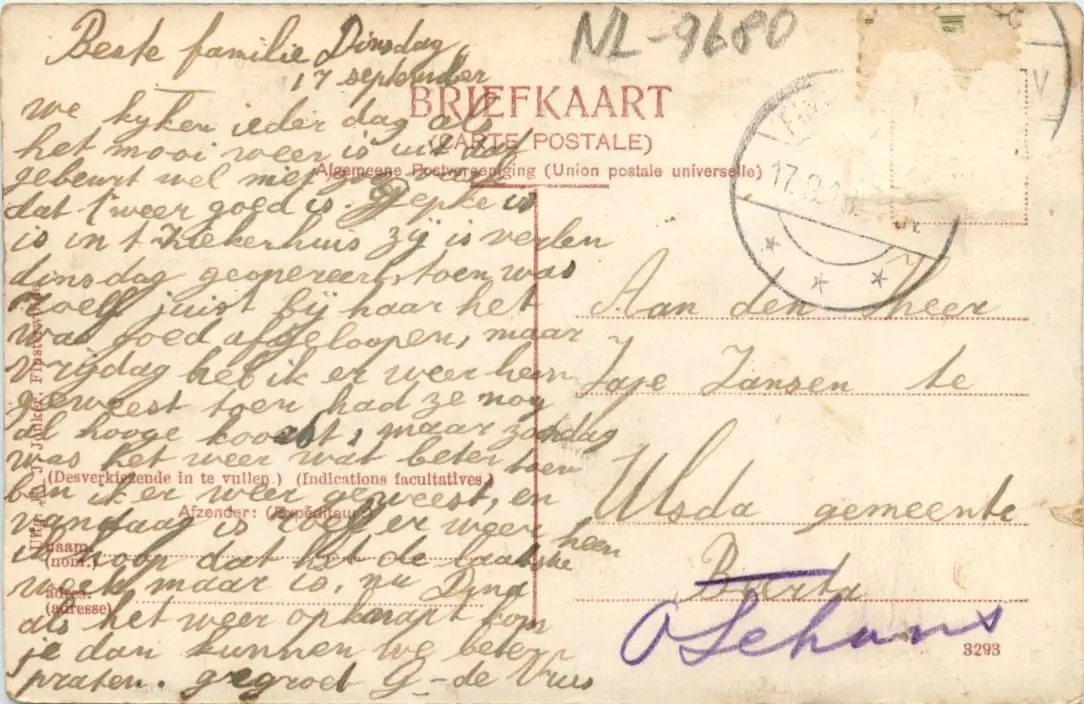 Beste familie Dinsdag
17 september
NL-9680
BRIEFKAART
(CARTE POSTALE)
Algemeene Postvereeniging (Union postale universelle)
we kyken ieder dag als
het mooi weer is uit dat
gebeurt wel niet
dat t weer goed is. Jepke is
is in t Ziekerhuis zij is verlen
dinsdag geopereert, toen was
Roelf juist bij haar het
was goed afgeloopen, maar
vrijdag heb ik er weer hen
geweest toen had ze nog
al hooge koorst, maar zondag
was het weer wat beter toen
ben ik er weer geweest, en
vandaag is Roelf er weer heen
ik hoop dat het de laatste
week maar is, nu Dina
als het weer opknapt kom
je dan kunnen we beter
praten. gegroet G-de Vries
(Desverkiezende in te vullen.) (Indications facultatives.)
Afzender: (Expéditeur:)
naam.
(nom.)
adres.
(adresse)
Uitg. J. Jonker, Finsterwolde
17.9.1
Aan den Heer
Jape Jansen te
Ulsda gemeente
Beerta
O Schans
3293